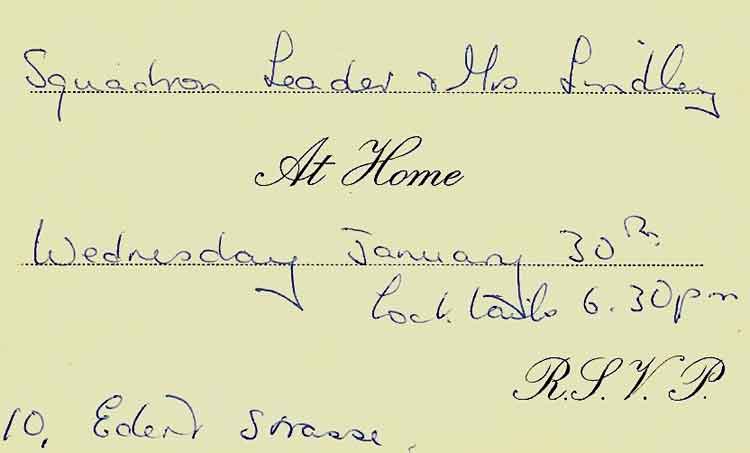 Squadron Leader & Mrs Lindley
At Home
Wednesday January 30th
Cocktails 6.30pm
R.S.V.P.
10, Strasse